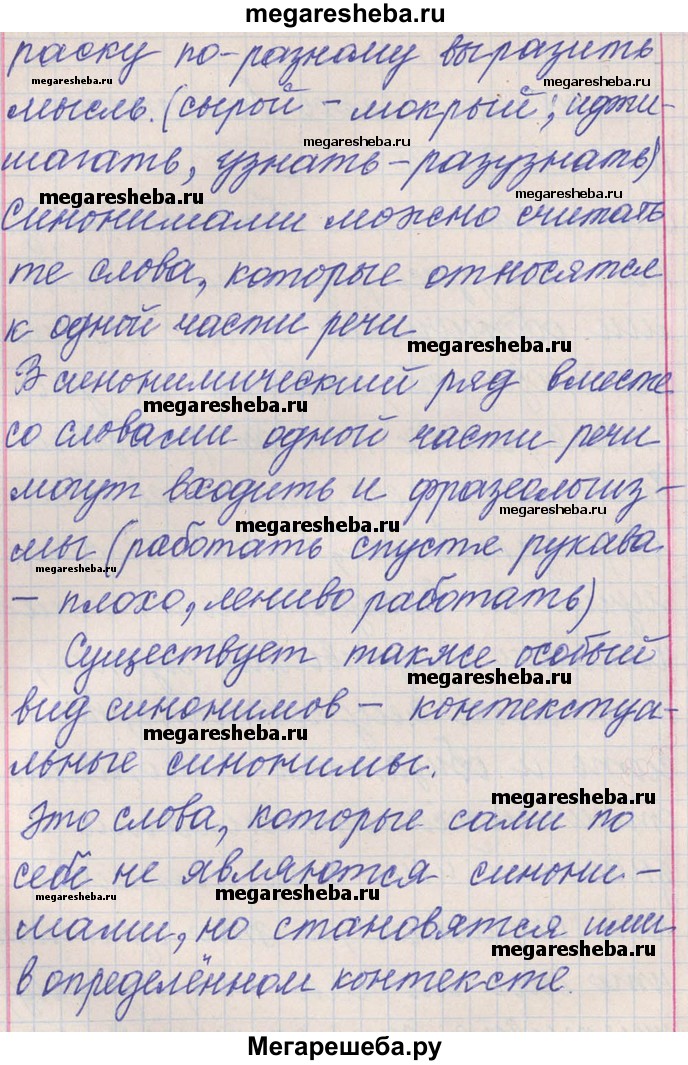 megaresheba.ru
раску по-разному выразить
megaresheba.ru
megaresheba.ru
мысль. (сырой – мокрый; идти
megaresheba.ru
шагать, узнать – разузнать)
megaresheba.ru
megaresheba.ru
Синонимами можно считать
те слова, которые относятся
к одной части речи
megaresheba.ru
В синонимический ряд вместе
megaresheba.ru
со словами одной части речи
могут входить и фразеологиз-
megaresheba.ru
megaresheba.ru
мы (работать спустя рукава
megaresheba.ru
– плохо, лениво работать)
Существует также особый
вид синонимов – контекстуа-
megaresheba.ru
льные синонимы.
megaresheba.ru
Это слова, которые сами по
себе не являются синони-
megaresheba.ru
megaresheba.ru
мами, но становятся ими
megaresheba.ru
в определённом контексте.
Мегарешеба.ру